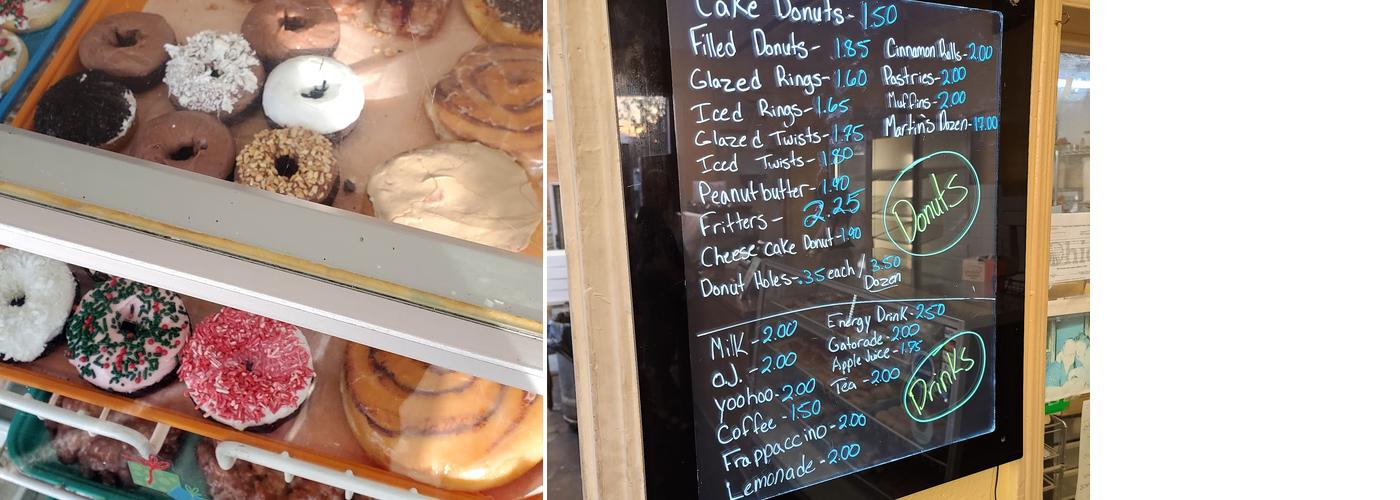 Cake Donuts- 1.50
Filled Donuts- 1.85
Glazed Rings- 1.60
Iced Rings- 1.65
Glazed Twists- 1.75
Iced Twists- 1.80
Peanutbutter- 1.90
Fritters- 2.25
Cheese cake Donut- 1.90
Donut Holes- .35 each/ 3.50
Dozen
Cinnamon Rolls- 2.00
Pastries- 2.00
Muffins- 2.00
Martin's Dozen- 17.00
Donuts
Milk- 2.00
O.J. - 2.00
yoohoo- 2.00
Coffee- 1.50
Frappaccino- 2.00
Lemonade- 2.00
Energy Drink- 2.50
Gatorade- 2.00
Apple Juice- 1.75
Tea- 2.00
Drinks